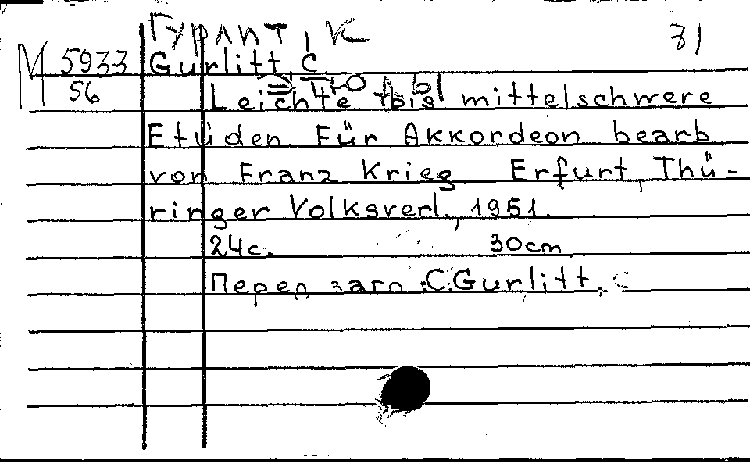 Гурлит, К 31
М 5933 Gurlitt C
56 Этюды
Leichte bis mittelschwere
Etüden Für Akkordeon bearb
von Franz Krieg Erfurt, Thü-
ringer Volksverl., 1951.
24с. 30cm
Перед загл.: C.Gurlitt.